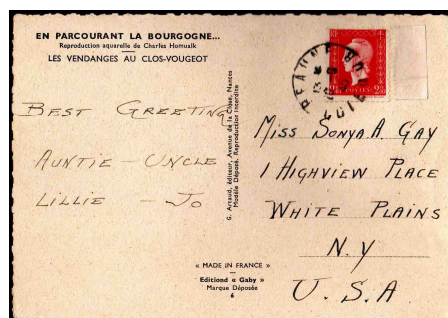 EN PARCOURANT LA BOURGOGNE...
Reproduction aquarelle de Charles Homualk
LES VENDANGES AU CLOS-VOUGEOT
BEST GREETING
AUNTIE - UNCLE
LILLIE - JO
G. Artaud, Editeur, Avenue de la Close, Nantes
Modèle Déposé. Reproduction Interdite
« MADE IN FRANCE »
Editiond « Gaby »
Marque Déposée
6
BEAUNE
POSTES
2F
MISS SONYA A. GAY
1 HIGHVIEW PLACE
WHITE PLAINS
N.Y
U.S.A